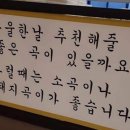 울한날 추천해줄
좋은 곡이 있을까요
럴때는 소곡이나
돼지곡이가 좋습니다